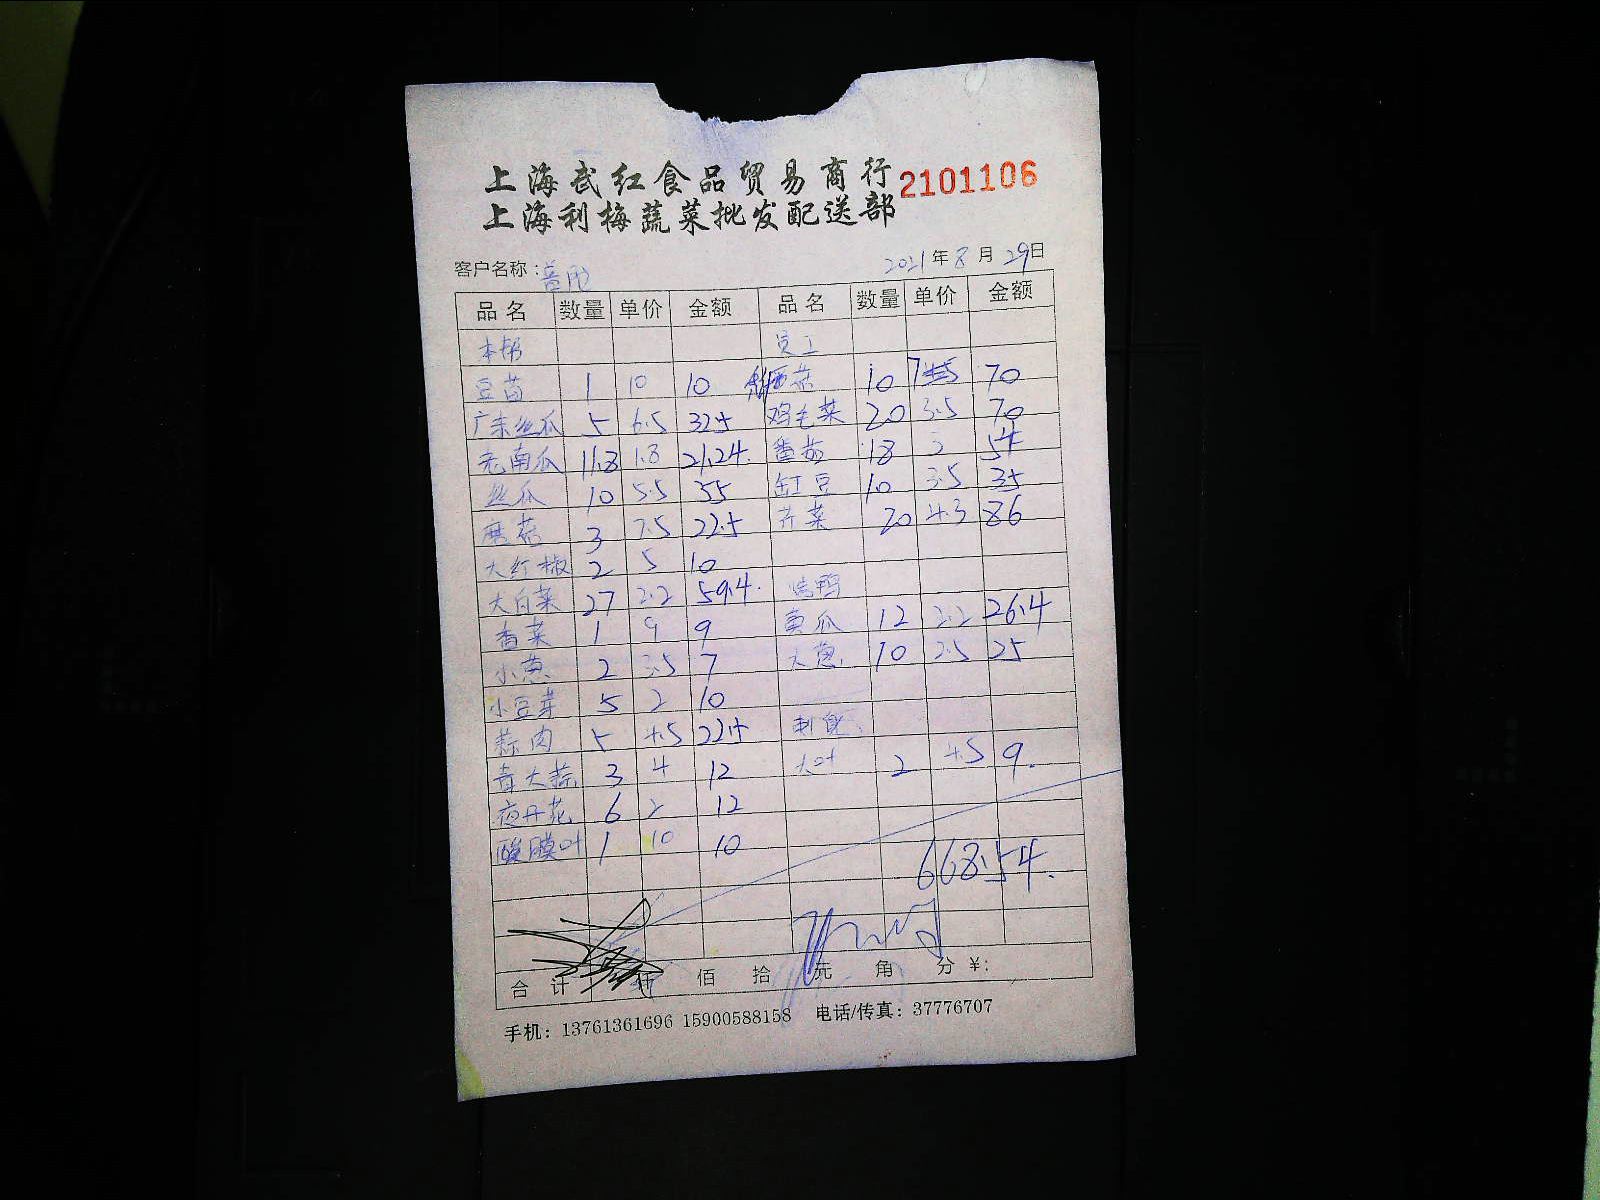 上海武红食品贸易商行 2101106
上海利梅蔬菜批发配送部
客户名称: 2021年8月29日
品名 数量 单价 金额 品名 数量 单价 金额
本帮 员工
豆苗 1 10 10 西芹 10 7 70
广东丝瓜 5 6.5 32.5 鸡毛菜 20 3.5 70
老南瓜 11.8 1.8 21.24 番茄 18 3 54
丝瓜 10 5.5 55 缸豆 10 3.5 35
蘑菇 3 7.5 22.5 芹菜 20 4.3 86
大红椒 2 5 10
大白菜 27 2.2 59.4 烤鸭
香菜 1 9 9 黄瓜 12 2.2 26.4
小葱 2 3.5 7 大葱 10 2.5 25
小豆芽 5 2 10
蒜肉 5 4.5 22.5 刺身
青大蒜 3 4 12 大叶 2 4.5 9
夜开花 6 2 12
酸膜叶 1 10 10
668.54
合计 仟 佰 拾 元 角 分 ¥:
手机: 13761361696 15900588158 电话/传真: 37776707